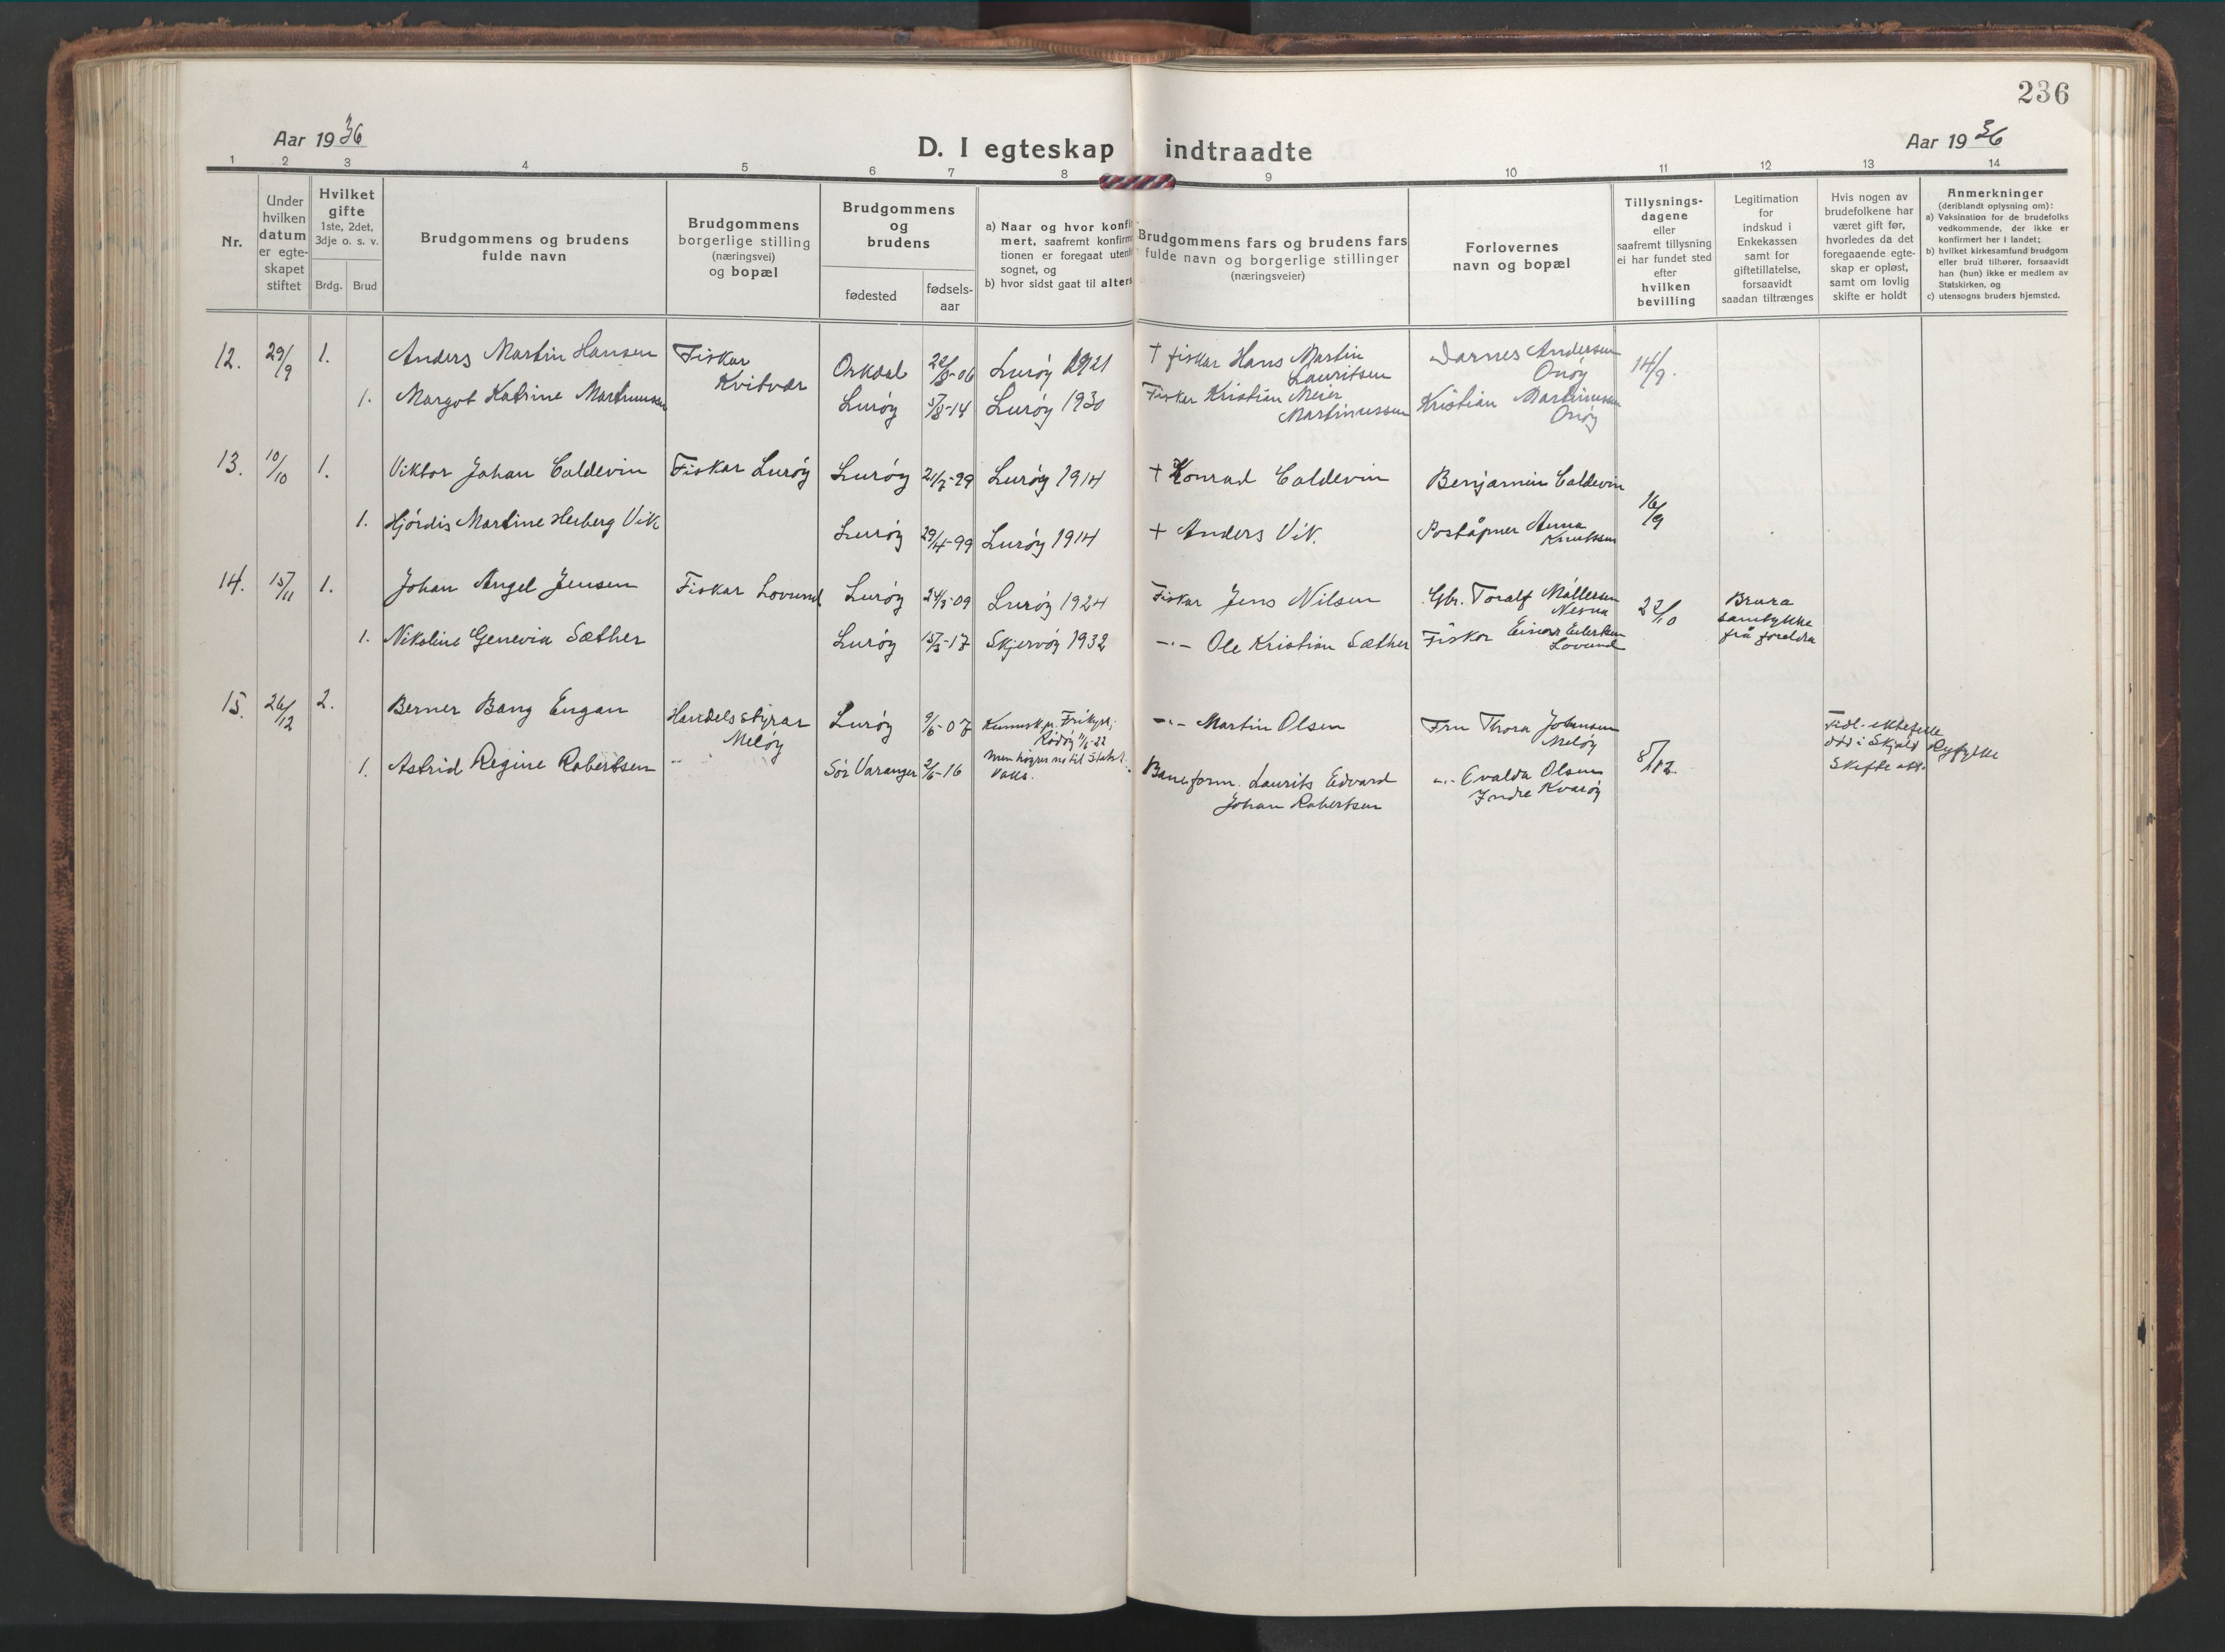 236
Aar 1936
D. I egteskap indtraadte
Aar 1936
1 2 3 4 5 6 7 8 9 10 11 12 13 14
Nr.
Under
hvilken
datum
er egte-
skapet
stiftet
Hvilket
gifte
1ste, 2det,
3dje o. s. v.
Brdg. Brud
Brudgommens og brudens
fulde navn
Brudgommens
borgerlige stilling
(næringsvei)
og bopæl
Brudgommens
og
brudens
fødested
fødsels-
aar
a) Naar og hvor konfir
mert, saafremt konfirm
tionen er foregaat utenf
sognet, og
b) hvor sidst gaat til alters
Brudgommens fars og brudens fars
fulde navn og borgerlige stillinger
(næringsveier)
Forlovernes
navn og bopæl
Tillysnings-
dagene
eller
saafremt tillysning
ei har fundet sted
efter
hvilken
bevilling
Legitimation
for
indskud i
Enkekassen
samt for
giftetillatelse,
forsaavidt
saadan tiltrænges
Hvis nogen av
brudefolkene har
været gift før,
hvorledes da det
foregaaende egte-
skap er opløst,
samt om lovlig
skifte er holdt
Anmerkninger
(deriblandt oplysning om):
a) Vaksination for de brudefolks
vedkommende, der ikke er
konfirmert her i landet;
b) hvilket kirkesamfund brudgom
eller brud tilhører, forsaavidt
han (hun) ikke er medlem av
Statskirken, og
c) utensogns bruders hjemsted.
12. 29/9 1. Anders Martin Hansen Fiskar Kvitvær Orkdal 22/8-06 Lurøy 1921 † fiskar Hans Martin Lauritsen Andersen Onøy 14/9.
1. Margot Katrine Martinussen Lurøy 5/8-14 Lurøy 1930 Fiskar Kristian Meier Martinussen Kristian Martinussen Onøy
13. 10/10 1. Viktor Johan Coldevin Fiskar Lurøy Lurøy 21/7-99 Lurøy 1914 † Konrad Coldevin Benjamin Coldevin 16/9
1. Hjórdis Martine Heiberg Vik Lurøy 29/4-99 Lurøy 1914 † Anders Vik. Poståpner Anna Knutssen
14. 15/11 1. Johan Angel Jensen Fiskar Lovund Lurøy 24/5-09 Lurøy 1924 Fiskar Jens Nilsen Gbr. Toralf Møllersen Nesna 22/10 Brura samtykke frå foreldra
1. Nikoline Genevia Sæther Lurøy 15/3-17 Skjervøy 1932 -"- Ole Kristian Sæther Fiskar Einar Eilertsen Lovund
15. 26/12 2. Berner Bang Engan Handelsstyrar Meløy Lurøy 9/6-07 Kunnsk.p. Frikyrk. Rødøy 11/6-22 -"- Martin Olsen Fru Thora Johansen Meløy 8/12. Tidl. ektefelle død i Skjold Ryfylke Skifte
1. Astrid Regine Robertsen -"- Sør Varanger 2/6-16 men høyrer no til Statsk. Vaks. Baneform. Laurits Edvard Johan Robertsen -"- Evalda Olsen Indre Kvarøy